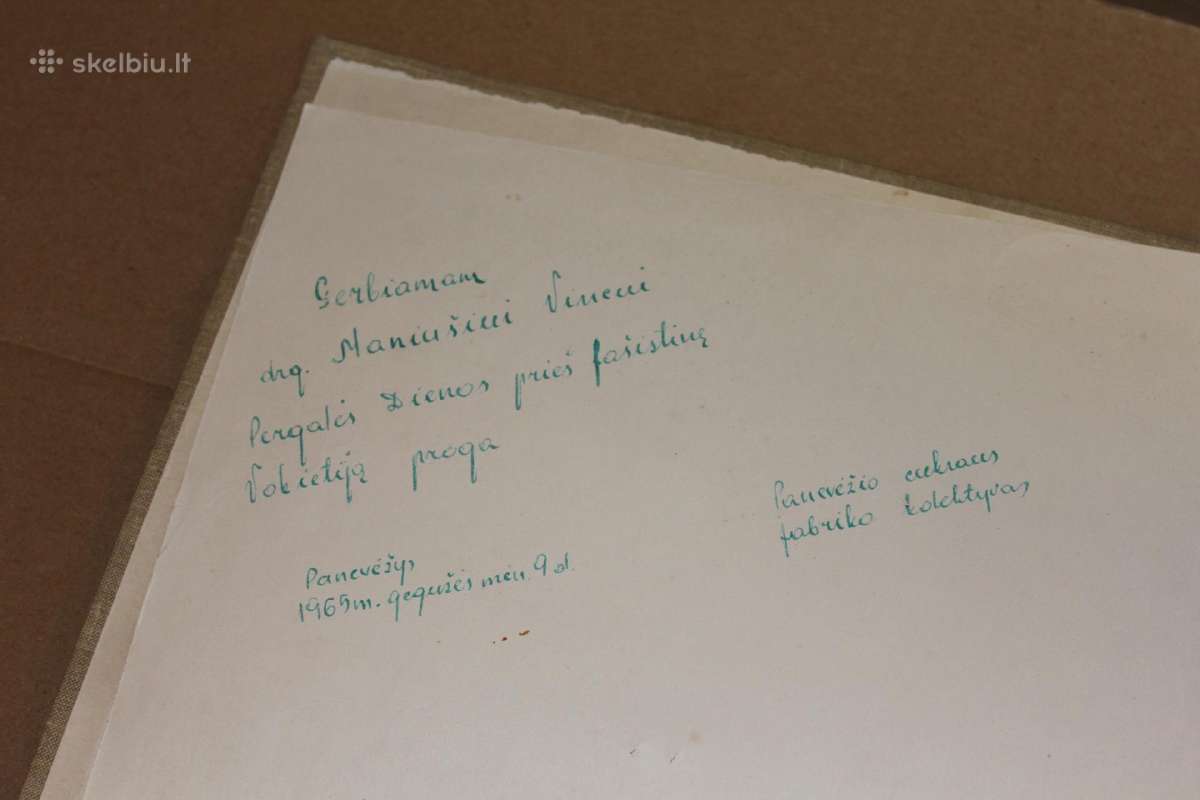 skelbiu.lt
Gerbiamam
drg. Maniušiui Vincui
Pergalės Dienos prieš fašistinę
Vokietiją proga
Panevėžio cukraus
fabriko kolektyvas
Panevėžys
1965m. gegužės mėn. 9 d.